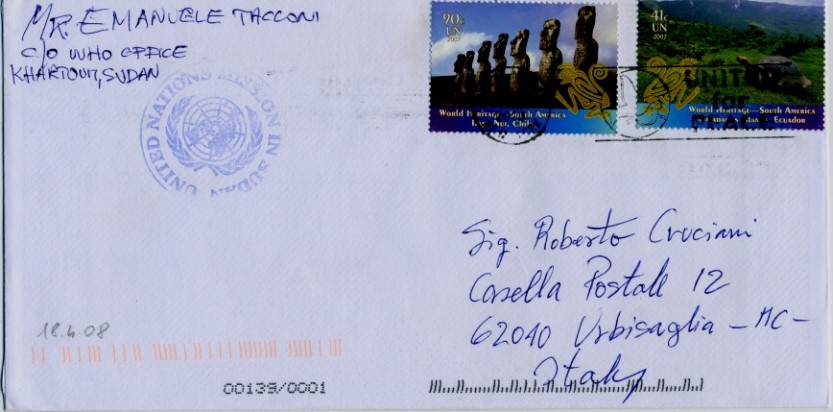 Mr. EMANUELE TACCONI
C/O WHO OFFICE
KHARTOUM, SUDAN
UNITED NATIONS MISSION IN SUDAN
90c
UN
2007
World Heritage—South America
Rapa Nui, Chile
41c
UN
2007
World Heritage—South America
Galapagos Islands, Ecuador
UNITED
for
PEACE
Sig. Roberto Cruciani
Casella Postale 12
62010 Urbisaglia – MC –
Italy
18.4.08
00139/0001